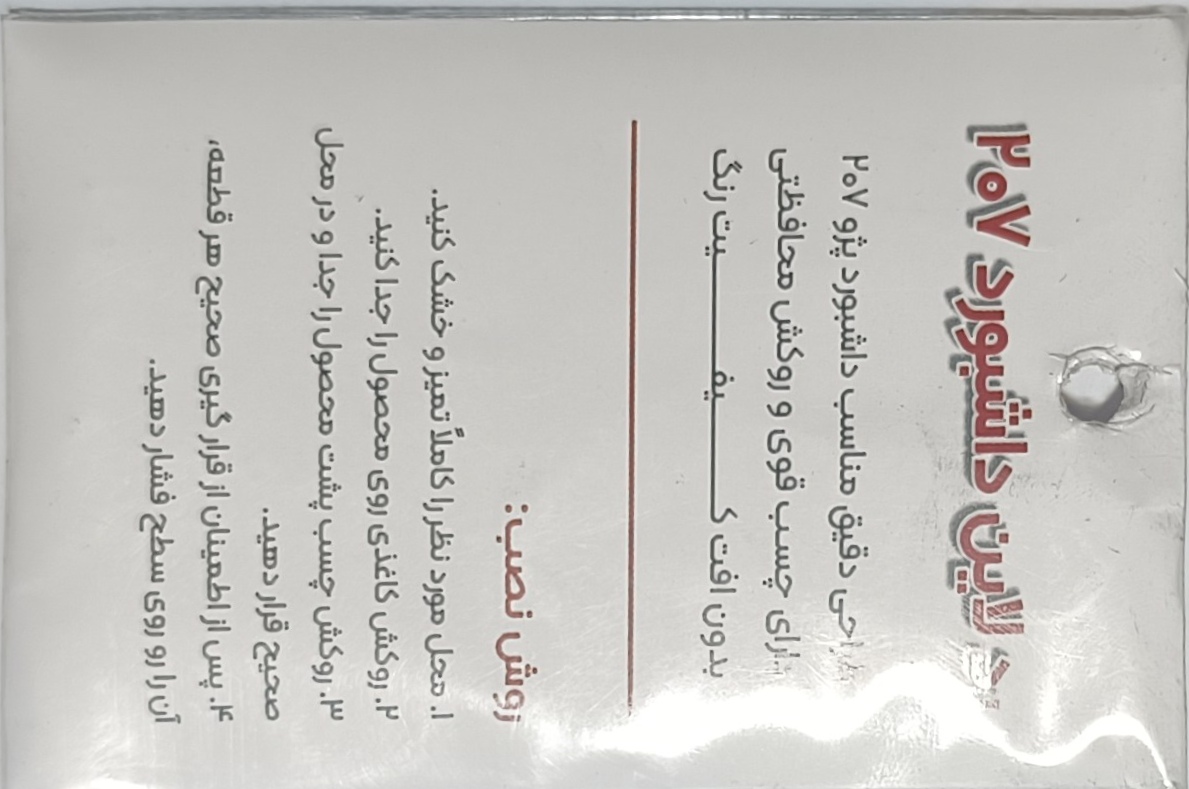 لاین داشبورد ۲۰۷
دقیق مناسب داشبورد پژو ۲۰۷
دارای چسب قوی و روکش محافظتی
بدون افت کـــیفـــیت رنگ
روش نصب:
۱. محل مورد نظر را کاملاً تمیز و خشک کنید.
۲. روکش کاغذی روی محصول را جدا کنید.
۳. روکش چسب پشت محصول را جدا و در محل
صحیح قرار دهید.
۴. پس از اطمینان از قرارگیری صحیح هر قطعه،
آن را رو روی سطح فشار دهید.